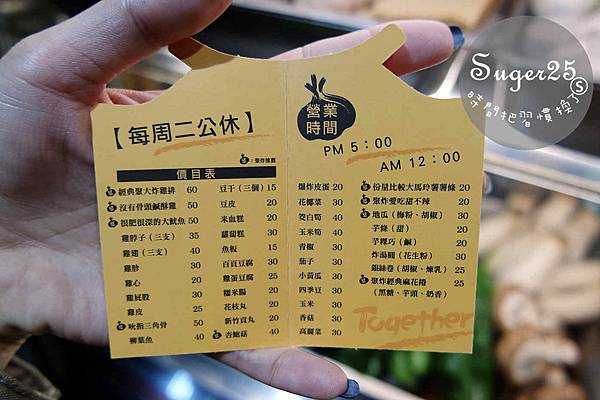 Suger25
時間把習慣換了
S
【每周二公休】
：聚炸推薦
價目表
經典聚大炸雞排 60
沒有骨頭鹹酥雞 50
很肥很深的大魷魚 50
雞脖子（三支） 35
雞翅（三支） 40
雞胗 30
雞心 20
雞屁股 30
雞皮 25
吮指三角骨 50
柳葉魚 40
豆干（三個）15
豆皮 20
米血糕 20
蘿蔔糕 30
魚板 15
百頁豆腐 30
雞蛋豆腐 25
糯米腸 20
花枝丸 20
新竹貢丸 20
杏鮑菇 40
營業
時間
PM 5：00
AM 12：00
爆炸皮蛋 20
花椰菜 30
筊白筍 40
玉米筍 40
青椒 30
茄子 30
小黃瓜 30
四季豆 30
玉米 30
香菇 30
高麗菜 30
份量比較大馬玲薯薯條 20
聚炸愛吃甜不辣 20
地瓜（梅粉、胡椒）30
芋條（甜） 20
芋粿巧（鹹） 20
炸湯圓（花生粉） 30
銀絲卷（胡椒、煉乳）25
聚炸經典麻花捲 30
（黑糖、芋頭、奶香）
Together